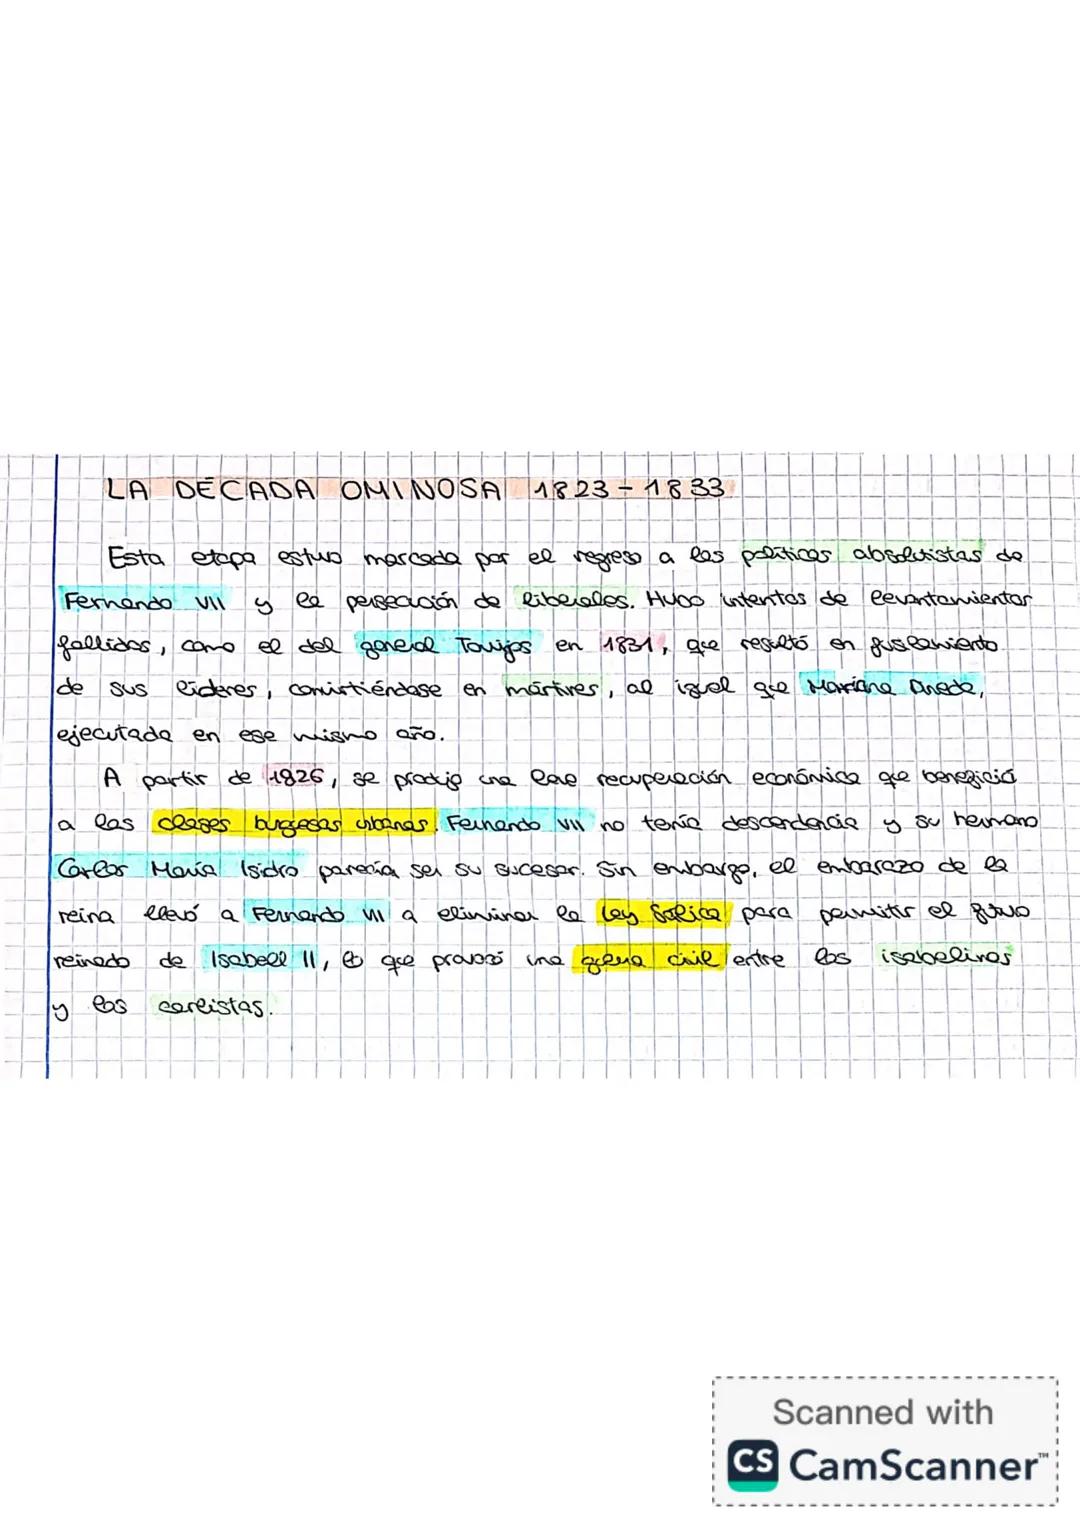 LA DECADA OMINOSA 1823-1833
Esta etapa estuvo marcada por el regreso a las políticas absolutistas de
Fernando VII y la persecución de liberales. Hubo intentos de levantamientos
fallidos, como el del general Torrijos en 1831, que resultó en fusilamiento
de sus líderes, convirtiéndose en mártires, al igual que Mariana Pineda,
ejecutada en ese mismo año.
A partir de 1826, se produjo una leve recuperación económica que benefició
a las clases burguesas urbanas. Fernando VII no tenía descendencia y su hermano
Carlos María Isidro parecía ser su sucesor. Sin embargo, el embarazo de la
reina llevó a Fernando VII a eliminar la Ley Sálica para permitir el futuro
reinado de Isabell II, lo que provocó una guerra civil entre los isabelinos
y los carlistas.
Scanned with
CS CamScanner™